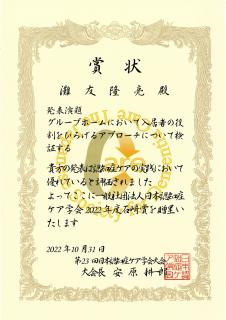 賞状
灘友隆亮 殿
発表演題
グループホームにおいて入居者の役
割をひろげるアプローチについて検
証する
貴方の発表は認知症ケアの実践において
優れていると評価されました
よってここに一般社団法人日本認知症
ケア学会2022年度石﨑賞を贈呈い
たします
2022年10月31日
第23回日本認知症ケア学会大会
大会長 安原耕一郎